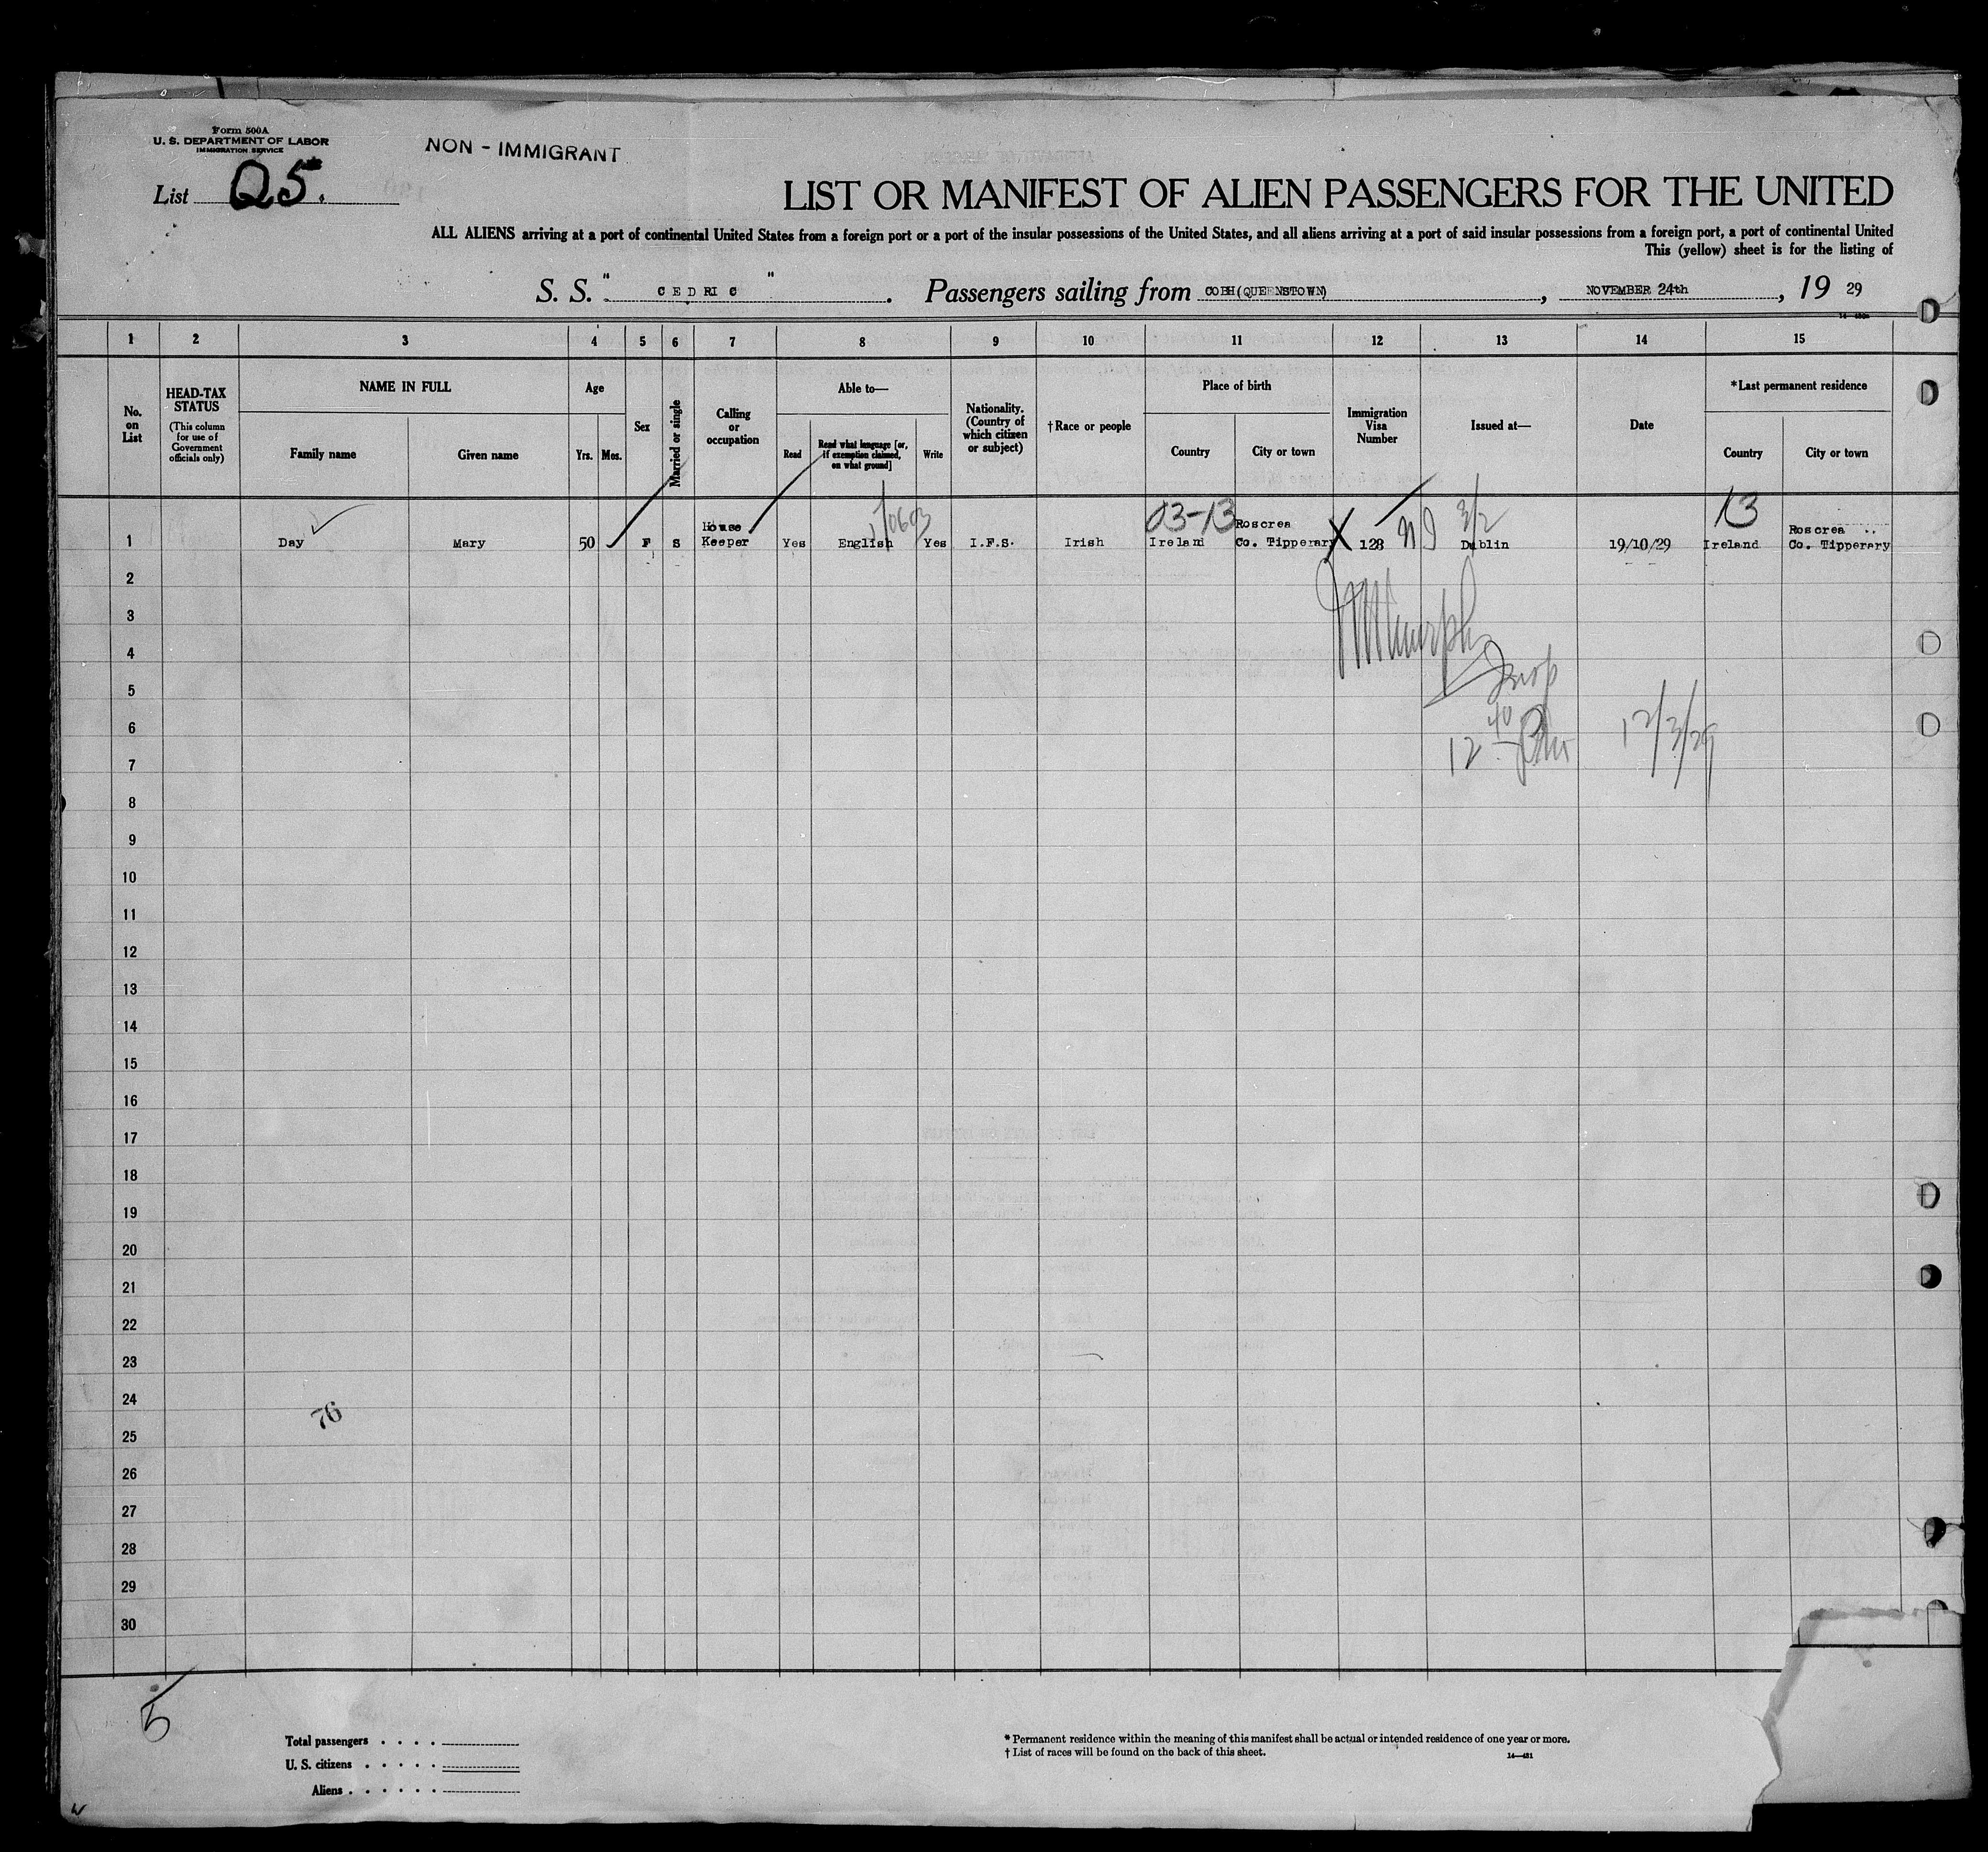 Form 500A
U. S. DEPARTMENT OF LABOR
IMMIGRATION SERVICE
NON - IMMIGRANT
List Q5.
LIST OR MANIFEST OF ALIEN PASSENGERS FOR THE UNITED
ALL ALIENS arriving at a port of continental United States from a foreign port or a port of the insular possessions of the United States, and all aliens arriving at a port of said insular possessions from a foreign port, a port of continental United
This (yellow) sheet is for the listing of
S. S. " CEDRIC ". Passengers sailing from COBH(QUEENSTOWN), NOVEMBER 24th, 19 29
1 2 3 4 5 6 7 8 9 10 11 12 13 14 15
No. on List
HEAD-TAX STATUS
(This column for use of Government officials only)
NAME IN FULL
Family name Given name
Age
Yrs. Mos.
Sex
Married or single
Calling or occupation
Able to—
Read
Read what language [or, if exemption claimed, on what ground]
Write
Nationality. (Country of which citizen or subject)
†Race or people
Place of birth
Country City or town
Immigration Visa Number
Issued at—
Date
*Last permanent residence
Country City or town
03-13 3/2 13
House Roscrea Roscrea
1 Day Mary 50 F S Keeper Yes English Yes I.F.S. Irish Ireland Co. Tipperary X 128 Dublin 19/10/29 Ireland Co. Tipperary
2
3
4
5
6
12 40 12/3/29
7
8
9
10
11
12
13
14
15
16
17
18
19
20
21
22
23
24
76
25
26
27
28
29
30
5
Total passengers . . . .
U. S. citizens . . . . .
Aliens . . . . . .
* Permanent residence within the meaning of this manifest shall be actual or intended residence of one year or more.
† List of races will be found on the back of this sheet.
14—481